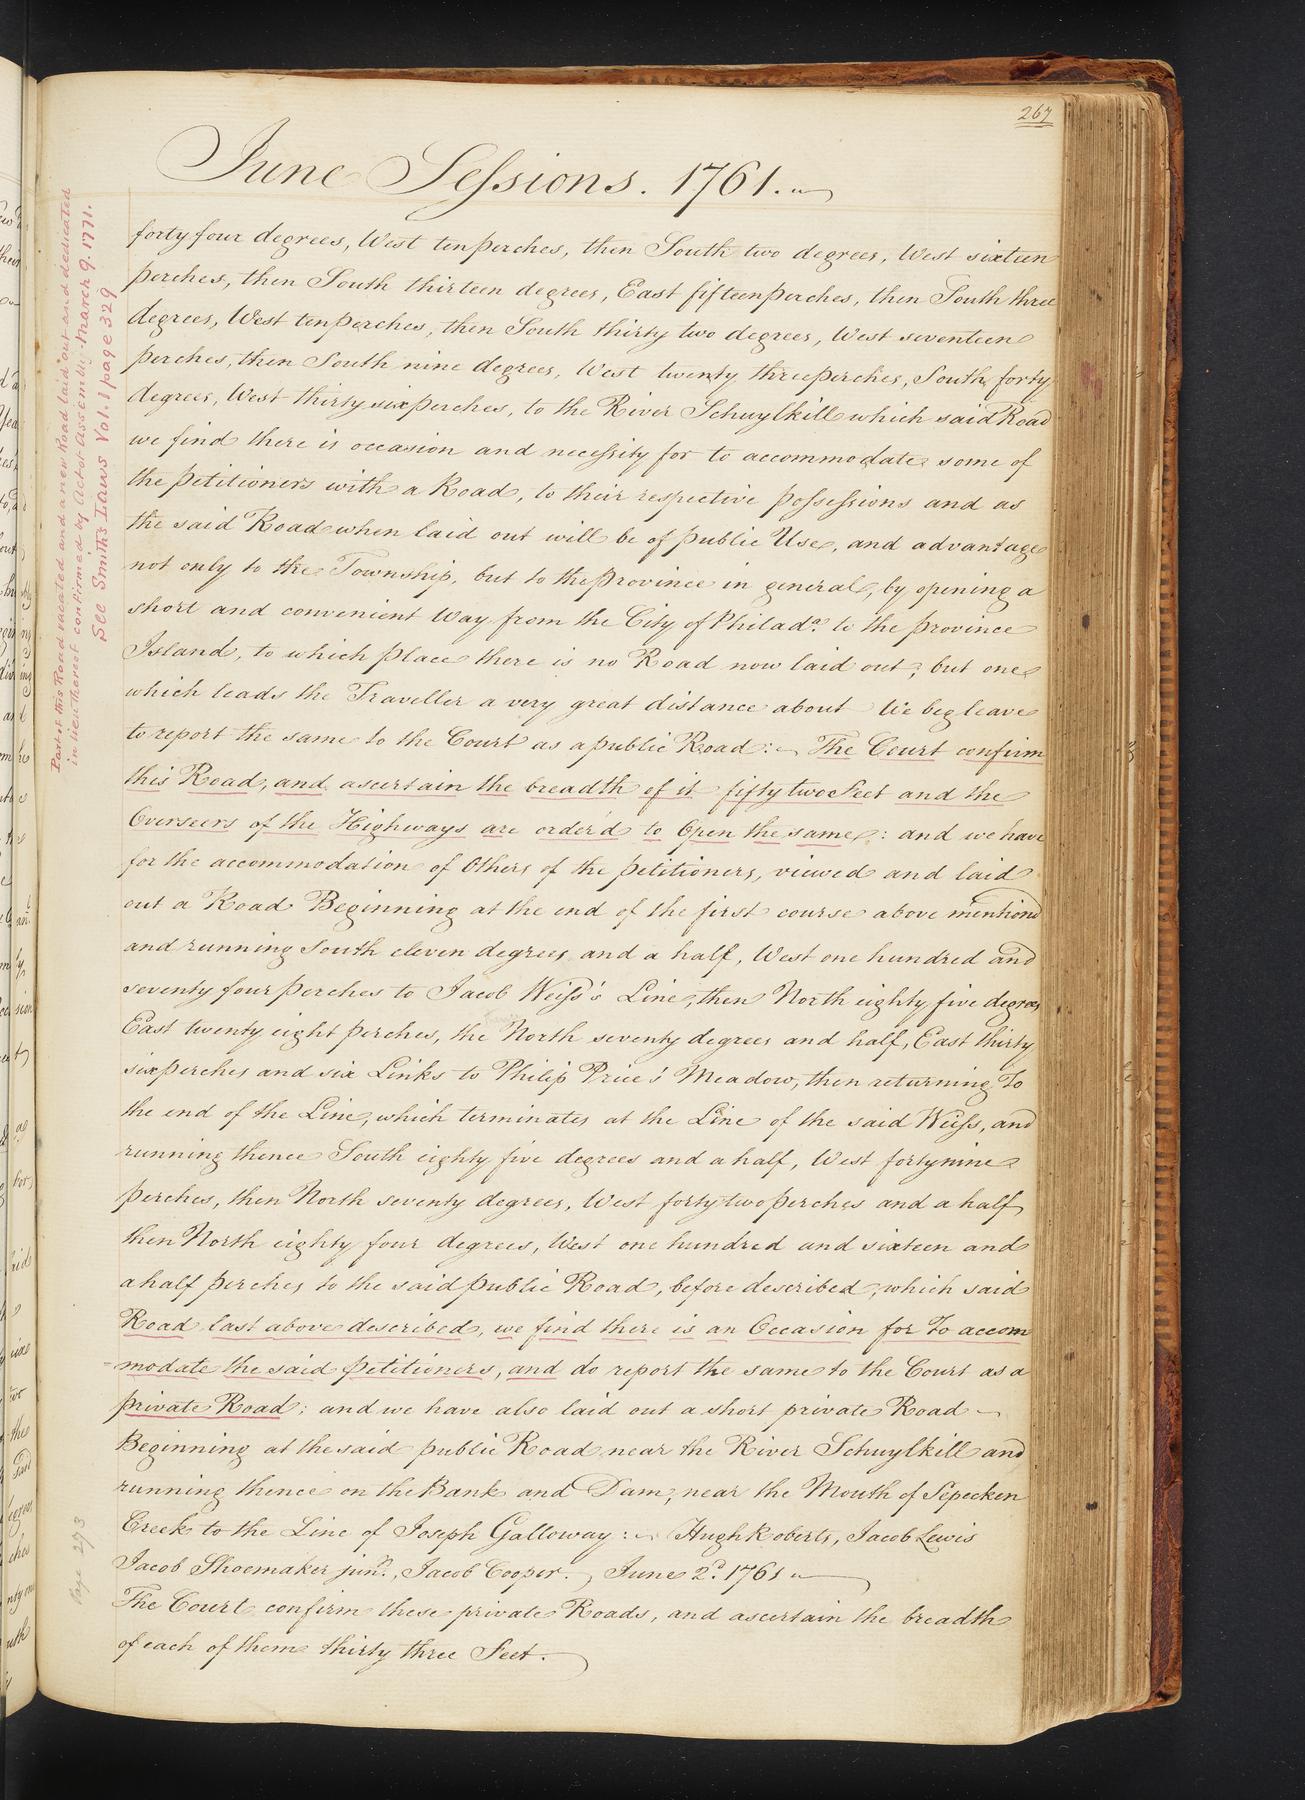 267
June Sessions. 1761.
forty four degrees, West ten perches, then South two degrees, West sixteen
perches, then South thirteen degrees, East fifteen perches, then South three
degrees, West ten perches, then South thirty two degrees, West seventeen
perches, then South nine degrees, West twenty three perches, South forty
degrees, West thirty six perches, to the River Schuylkill which said Road
we find there is occasion and necessity for to accommodate some of
the petitioners with a Road, to their respective possessions and as
the said Road when laid out will be of public Use, and advantage
not only to the Township, but to the province in general, by opening a
short and convenient Way from the City of Philada. to the province
Island, to which place there is no Road now laid out; but one
which leads the Traveller a very great distance about We beg leave
to report the same to the Court as a public Road:~ The Court confirm
this Road, and ascertain the breadth of it fifty two Feet and the
Overseers of the Highways are order'd to Open the same: and we have
for the accommodation of Others of the petitioners, viewed and laid
out a Road Beginning at the end of the first course above mentiond
and running South eleven degrees and a half, West one hundred and
seventy four perches to Jacob Weiss's Line, then North eighty five degrees
East twenty eight perches, the North seventy degrees and half, East thirty
six perches and six Links to Philip Price's Meadow, then returning To
the end of the Line, which terminates at the Line of the said Weiss, and
running thence South eighty five degrees and a half, West forty nine
perches, then North seventy degrees, West forty two perches and a half
then North eighty four degrees, West one hundred and sixteen and
a half perches to the said public Road, before described, which said
Road last above described, we find there is an Occasion for To accom
=modate the said petitioners, and do report the same to the Court as a
private Road; and we have also laid out a short private Road ~
Beginning at the said public Road near the River Schuylkill and
running thence on the Bank and Dam, near the Mouth of Sepecken
Creek to the Line of Joseph Galloway:~ Hugh Roberts, Jacob Lewis
Jacob Shoemaker junr., Jacob Cooper. June 2d. 1761
The Court confirm these private Roads, and ascertain the breadth
of each of them thirty three Feet.
Part of this Road vacated and a new Road laid out and dedicated
in lieu thereof confirmed by Act of Assembly March 9. 1771.
See Smith's Laws Vol. 1 page 329
Page 273